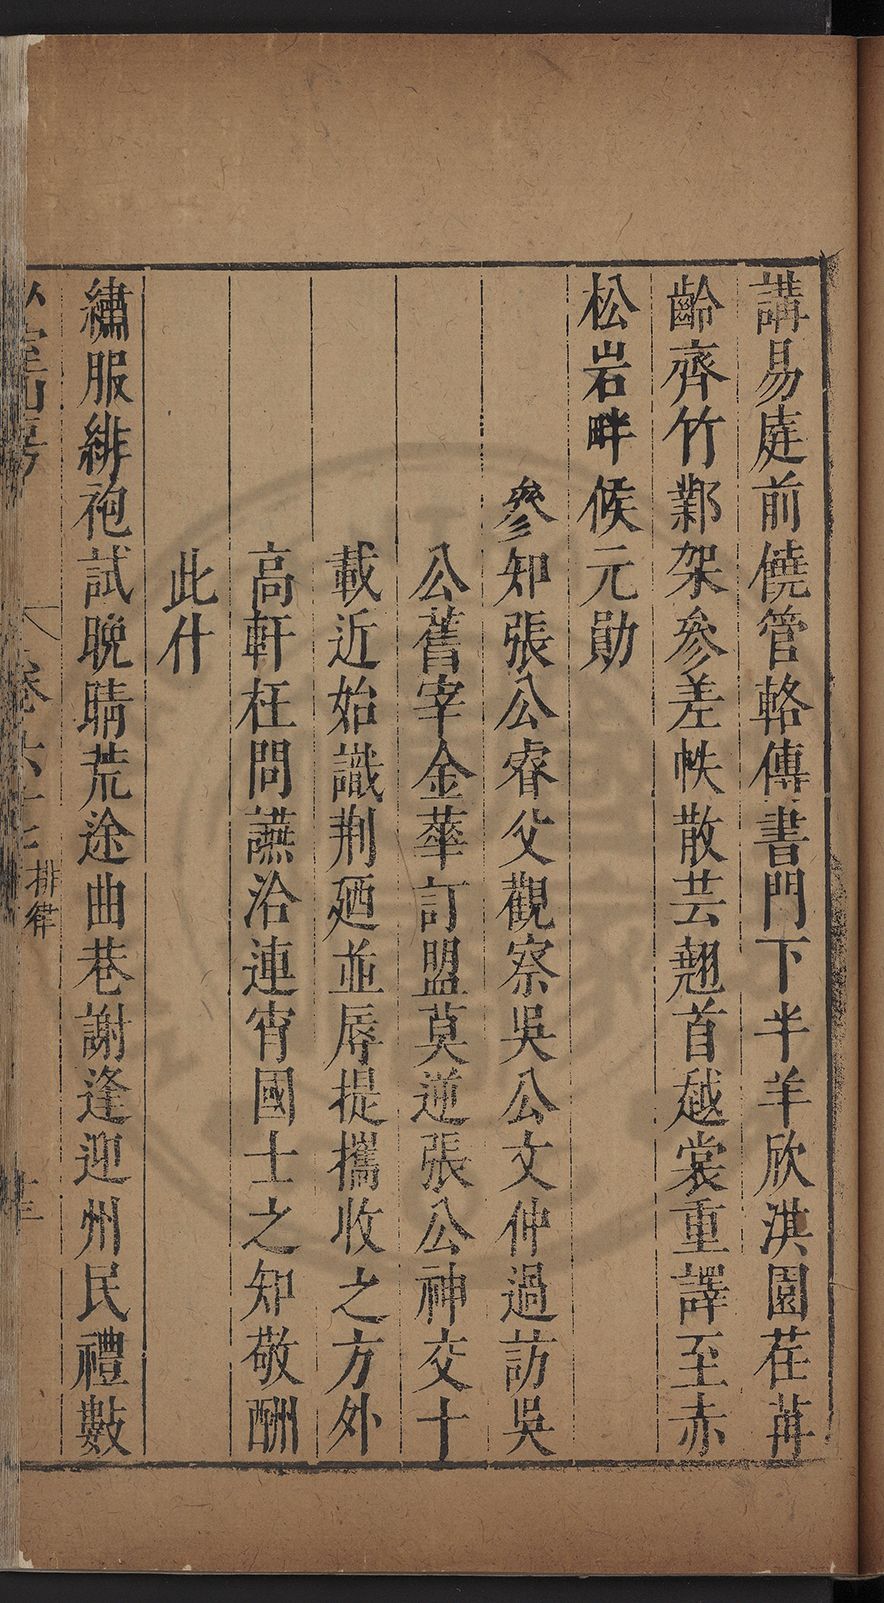 講易庭前僥管輅傳書門下半羊欣淇園荏苒
齡齊竹鄴架參差帙散芸翹首越裳重譯至赤
松岩畔候元勛
參知張公睿父觀察吳公文仲過訪吳
公舊宰金華訂盟莫逆張公神交十
載近始識荆廼並辱提攜收之方外
高軒枉問讌洽連宵國士之知敬酬
此什
繡服緋袍試晚晴荒途曲巷謝逢迎州民禮數
山房 卷六十 排律